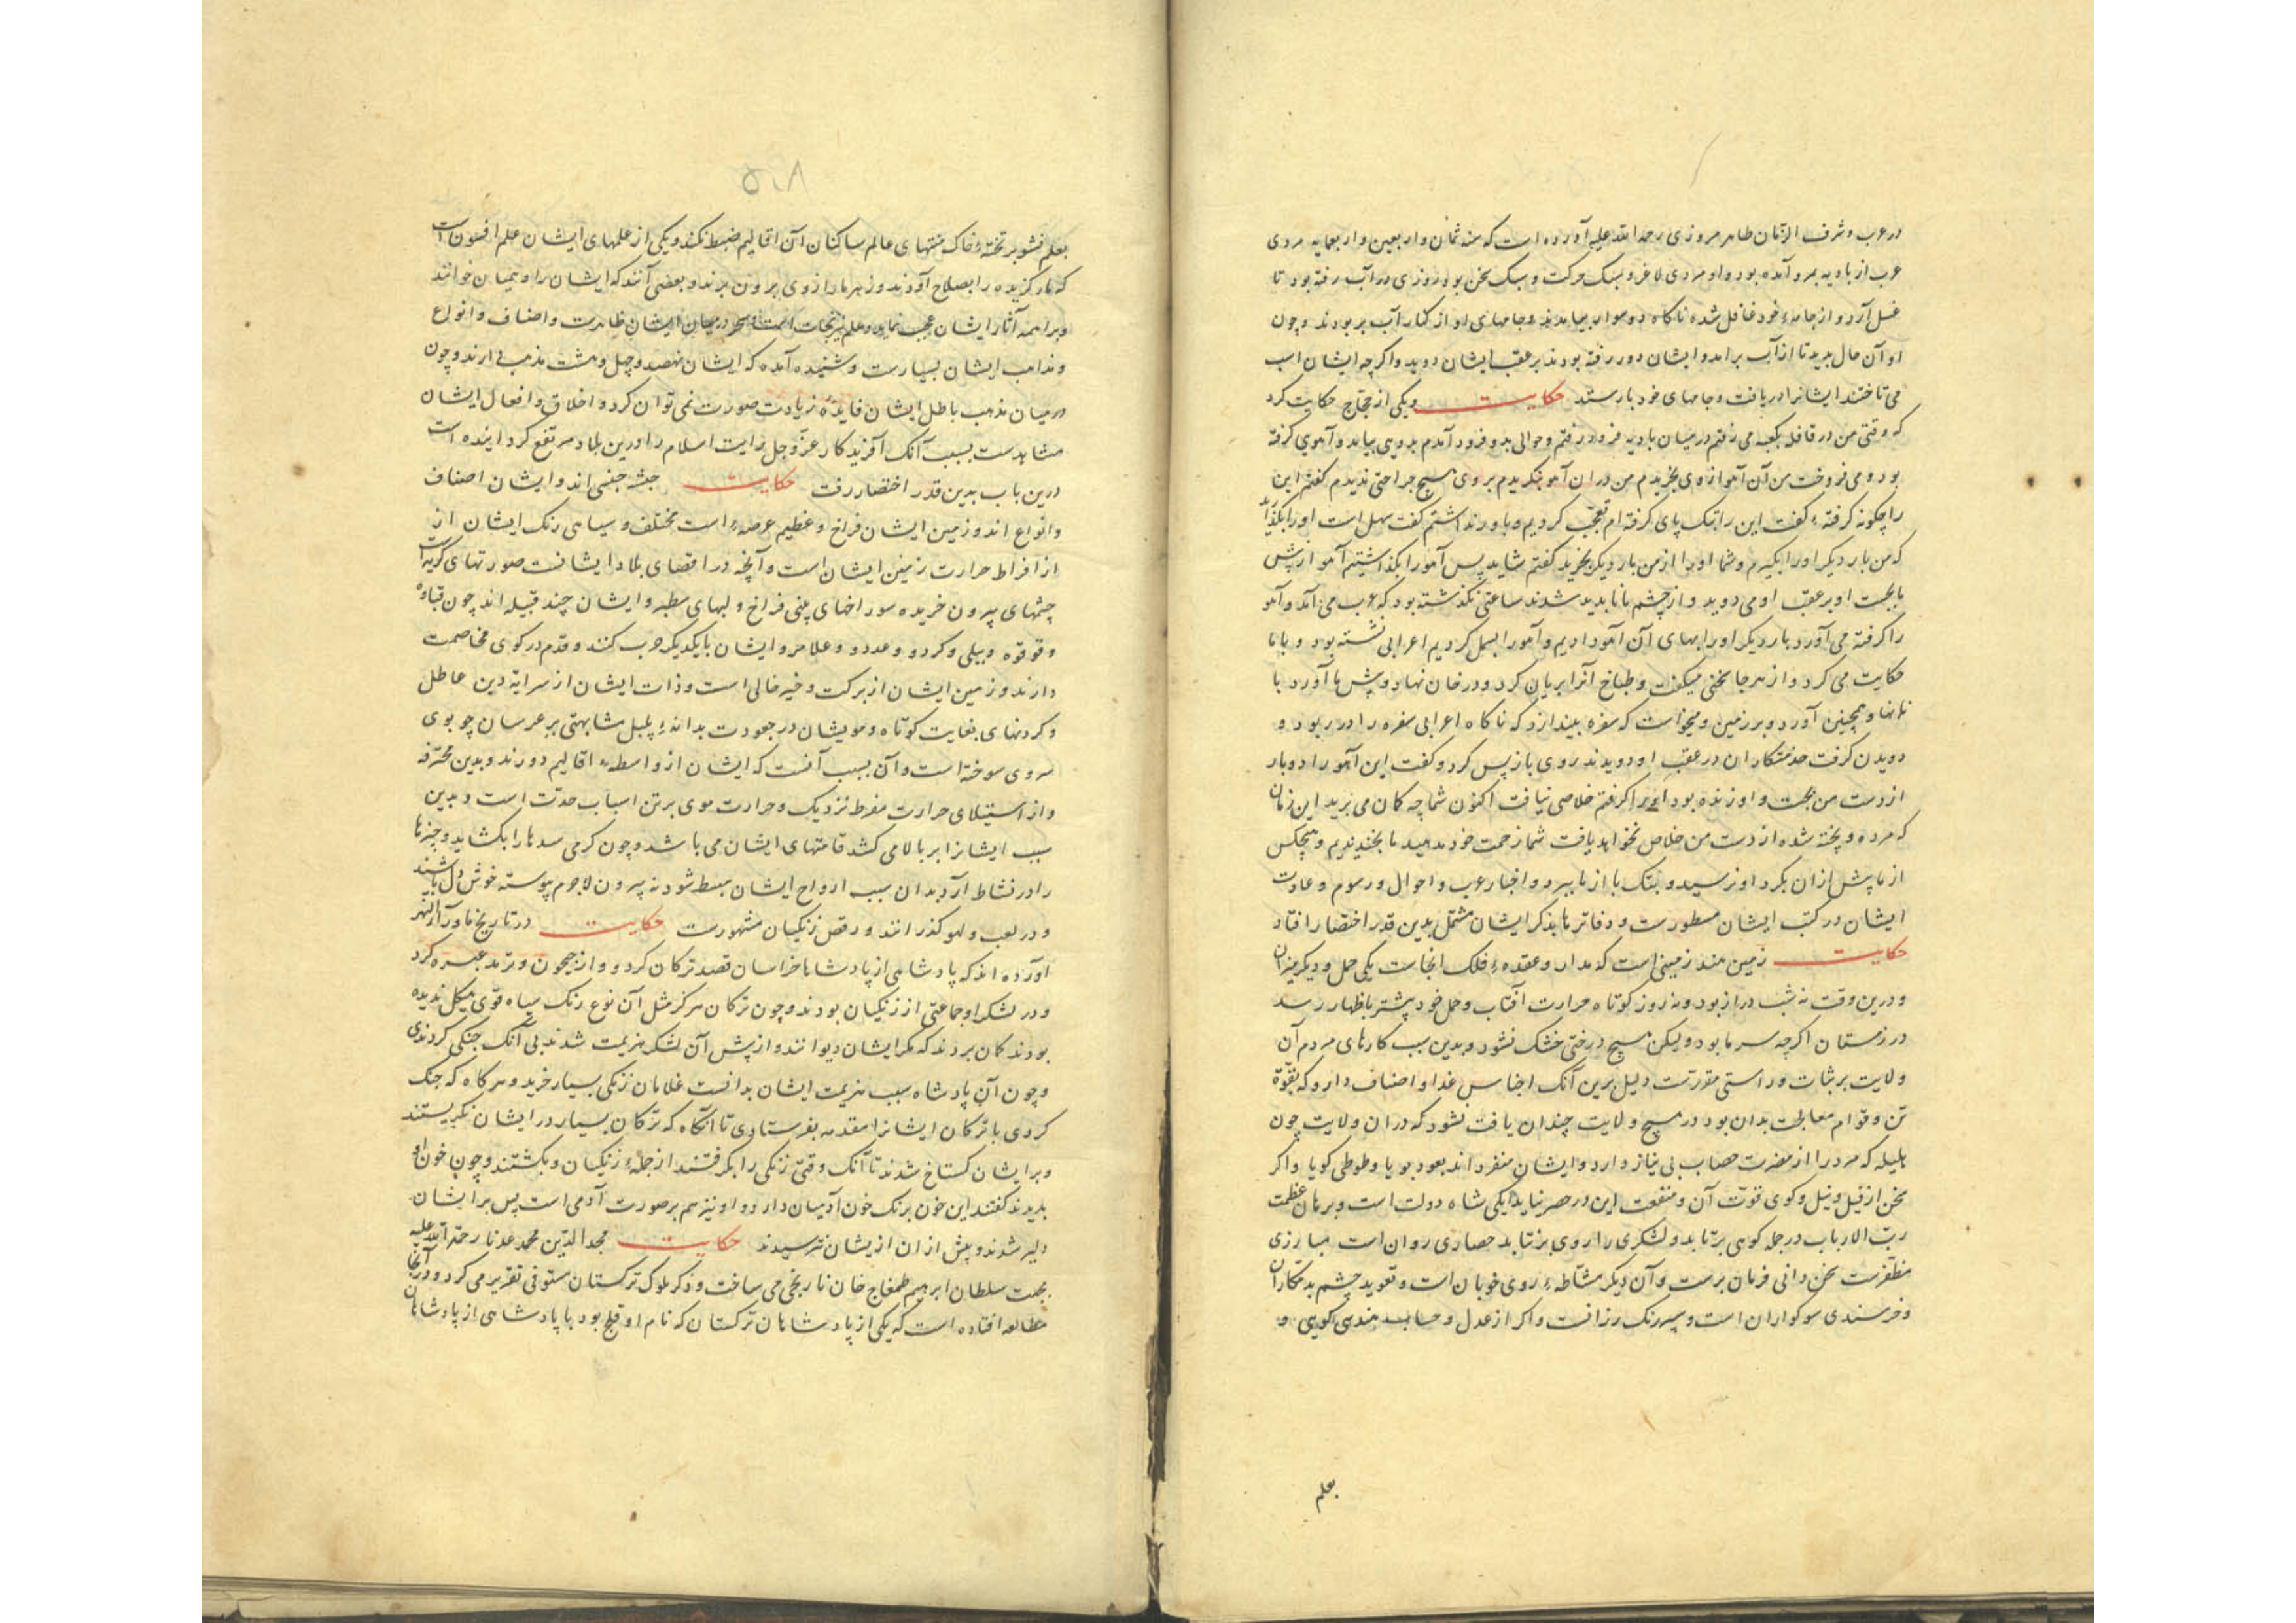 در عرب و شرف الزمان طاهر مروزی رحمة الله علیه آورده است که سنه ثمان و اربعین و اربعمایه مردی
عرب از بادیه بمرو آمده بود و او مردی لاغر و سبک حرکت و سبک سخن بود روزی در آب رفته بود تا
غسل آرد و از جامهٔ خود غافل شده ناکاه دو سوار بیامدند و جامهای او از کنار آب بربودند و چون
او آن حال بدید تا از آب برامد و ایشان دور رفته بودند بر عقب ایشان دوید و اکرچه ایشان اسب
می تاختند ایشانرا دریافت و جامهای خود بازستد حکایت و یکی از حجاج حکایت کرد
که وقتی من در قافله بکعبه می رفتم در میان بادیه فرود رفتم و حوالی بدو فرود آمدم بدویی بیامد و آهوی کرفته
بود و می فروخت من آن آهو از وی بخریدم من در ان آهو بنکریدم بر وی هیچ جراحتی ندیدم کفتم این
را چکونه کرفتهٔ کفت این را بتک پای کرفته ام تعجب کردیم و باور نداشتم کفت سهل است او را بکذارید
که من بار دیکر او را بکیرم و شما او را از من بار دیکر بخرید کفتم شاید پس آهو را بکذاشتیم آهو از پیش
ما بجست او بر عقب او می دوید و از چشم ما ناپدید شدند ساعتی نکذشته بود که عرب می آمد و آهو
را کرفته می آورد بار دیکر او را بهای آن آهو دادیم و آهو را بسمل کردیم اعرابی نشسته بود و با ما
حکایت می کرد و از هر جا سخنی میکفت و طباخ آنرا بریان کرد و در خان نهاد و پیش ما آورد با
نانها و همچنین آورد و بر زمین و میخواست که سفره بیندازد که ناکاه اعرابی سفره را در ربود و
دویدن کرفت خدمتکاران در عقب او دویدند روی باز پس کرد و کفت این آهو را دو بار
از دست من بجست و او زنده بود او را کرفتم خلاصی نیافت اکنون شما چه کمان می برید این زمان
که مرده و پخته شده از دست من خلاص نخواهد یافت شما زحمت خود مدهید ما بخندیدیم و هیچکس
از ما پیش از ان بکرد او نرسید و بتک پا از ما ببرد و اخبار عرب و احوال و رسوم و عادت
ایشان در کتب ایشان مسطورست و دفاتر ما بذکر ایشان مشتمل بدین قدر اختصار افتاد
حکایت زمین هند زمینی است که مدار و عقدهٔ فلک انجاست یکی حمل و دیکر میزان
و درین وقت نه شب دراز بود و نه روز کوتاه حرارت آفتاب و حمل خود پیشتر باظهار رسد
در زمستان اکرچه سرما بود ولیکن هیچ درختی خشک نشود و بدین سبب کارهای مردم آن
ولایت بر ثبات و راستی مقررست دلیل برین آنک اجناس غذا و اصناف دارو که بقوّة
تن و قوام معالجت بدان بود در هیچ ولایت چندان یافت نشود که در ان ولایت چون
هلیله که مرد را از مضرت خضاب بی نیاز دارد و ایشان منفرد اند بعود بویا و طوطی کویا و اکر
سخن از فیل و نیل و کوی قوت آن و منفعت این در حصر نیاید یکی شاه دولت است و برهان عظمت
رب الارباب در حمله کوهی برتابد و لشکری را روی برتابد حصاری روان است مبارزی
مظفرست سخن دانی فرمان برست و آن دیکر مشّاطهٔ روی خوبان است و تعوید چشم بدمکاران
و خرسندی سوکواران است و سپهر رنک رزانست و اکر از عدل و حساب هندسی کویی و
بعلم
۵۰۸
بعلم نشو بر تختهٔ خاک منتهای عالم ساکنان آن اقالیم ضبط نکند و یکی از علمهای ایشان علم افسون است
که مار کزیده را بصلاح آورند و زهر مار از وی بیرون برند و بعضی آنند که ایشان را وهمیان خوانند
و براهمه آثار ایشان عجب نماید و علم نیرنجات است و سحر در میان ایشان ظاهرست و اصناف و انواع
و مذاهب ایشان بسیارست و شنیده آمده که ایشان نهصد و چهل و هشت مذهب دارند و چون
در میان مذهب باطل ایشان فایدهٔ زیادت صورت نمی توان کرد و اخلاق و افعال ایشان
مشاهدست بسبب آنک آفریدکار عزّوجل رایت اسلام را درین بلاد مرتفع کردانیده است
درین باب بدین قدر اختصار رفت حکایت حبشه جنسی اند و ایشان اصناف
و انواع اند و زمین ایشان فراخ و عظیم عرصهٔ است مختلف و سیاهی رنک ایشان از
از افراط حرارت زمین ایشان است و آنچه در اقصای بلاد ایشانست صورتهای کریه است
چشمهای بیرون خزیده سوراخهای بینی فراخ و لبهای سطبر و ایشان چند قبیله اند چون قباوه
و قوقوه و بیلی و کردو و عددو و علامرو ایشان با یکدیکر حرب کنند و قدم در کوی مخاصمت
دارند و زمین ایشان از برکت و خیر خالی است و ذات ایشان از سرایهٔ دین عاطل
و کردنهای بغایت کوتاه و مویشان در جعودت بدانهٔ پلپل مشابهتی بر عرسان چو بوی
سروی سوخته است و آن بسبب آنست که ایشان از واسطهٔ اقالیم دورند و بدین محترفه
و از استیلای حرارت مفرط نزدیک و حرارت موی بر تن اسباب حدّت است و بدین
سبب ایشانرا بر بالا می کشد قامتهای ایشان می باشد و چون کرمی سدها را بکشاید و چیزها
را در نشاط آرد بدان سبب ارواح ایشان منبسط شود نه بیرون لاجرم پیوسته خوش دل باشند
و در لعب و لهو کذرانند و رقص زنکیان مشهورست حکایت در تاریخ ماوراء النهر
آورده اند که پادشاهی از پادشاهان خراسان قصد ترکان کرد و از جیحون و ترمد عبره کرد
و در لشکر او جماعتی از زنکیان بودند و چون ترکان هرکز مثل آن نوع رنک سیاه قوی هیکل ندیده
بودند کمان بردند که مکر ایشان دیوانند و از پیش آن لشکر هزیمت شدند بی آنک جنکی کردندی
و چون آن پادشاه سبب هزیمت ایشان بدانست غلامان زنکی بسیار خرید و هر کاه که جنک
کردی با ترکان ایشانرا مقدمه بفرستادی تا آنکاه که ترکان بسیار در ایشان نکریستند
و بر ایشان کستاخ شدند تا آنک وقتی زنکی را بکرفتند از جملهٔ زنکیان و بکشتند و چون خون او
بدیدند کفتند این خون برنک خون آدمیان دارد و او نیز هم بر صورت آدمی است پس بر ایشان
دلیر شدند و پیش از ان از یشان نترسیدند حکایت مجد الدین محمد عدنان رحمة الله علیه
بجهت سلطان ابرهیم طمغاج خان تاریخی می ساخت و ذکر ملوک ترکستان مستوفی تقریر می کرد و در انجا
مطالعه افتاده است که یکی از پادشاهان ترکستان که نام او قلج بود با پادشاهی از پادشاهان